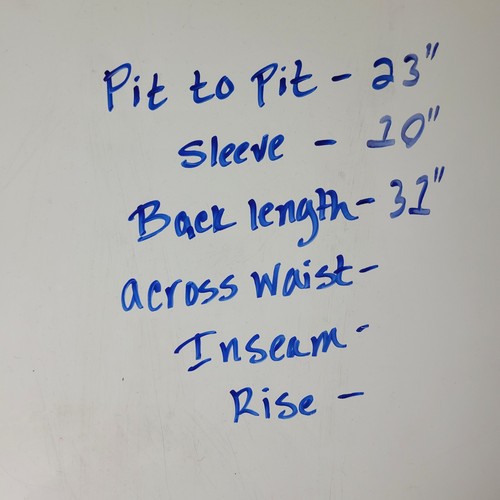 Pit to Pit - 23"
Sleeve - 10"
Back length - 31"
across Waist -
Inseam -
Rise -